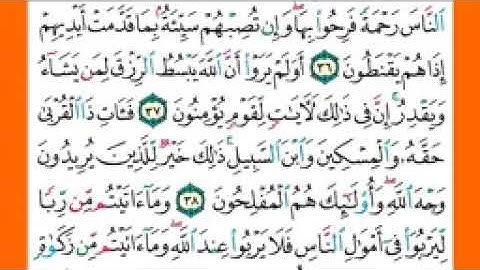 ٱلنَّاسَ رَحْمَةً فَرِحُوا۟ بِهَا وَإِن تُصِبْهُمْ سَيِّئَةٌۢ بِمَا قَدَّمَتْ أَيْدِيهِمْ
إِذَا هُمْ يَقْنَطُونَ ٣٦ أَوَلَمْ يَرَوْا۟ أَنَّ ٱللَّهَ يَبْسُطُ ٱلرِّزْقَ لِمَن يَشَآءُ
وَيَقْدِرُ إِنَّ فِى ذَٰلِكَ لَـَٔايَـٰتٍ لِّقَوْمٍ يُؤْمِنُونَ ٣٧ فَـَٔاتِ ذَا ٱلْقُرْبَىٰ
حَقَّهُۥ وَٱلْمِسْكِينَ وَٱبْنَ ٱلسَّبِيلِ ذَٰلِكَ خَيْرٌ لِّلَّذِينَ يُرِيدُونَ
وَجْهَ ٱللَّهِ وَأُو۟لَـٰٓئِكَ هُمُ ٱلْمُفْلِحُونَ ٣٨ وَمَآ ءَاتَيْتُم مِّن رِّبًا
لِّيَرْبُوَا۟ فِىٓ أَمْوَٰلِ ٱلنَّاسِ فَلَا يَرْبُوا۟ عِندَ ٱللَّهِ وَمَآ ءَاتَيْتُم مِّن زَكَوٰةٍ